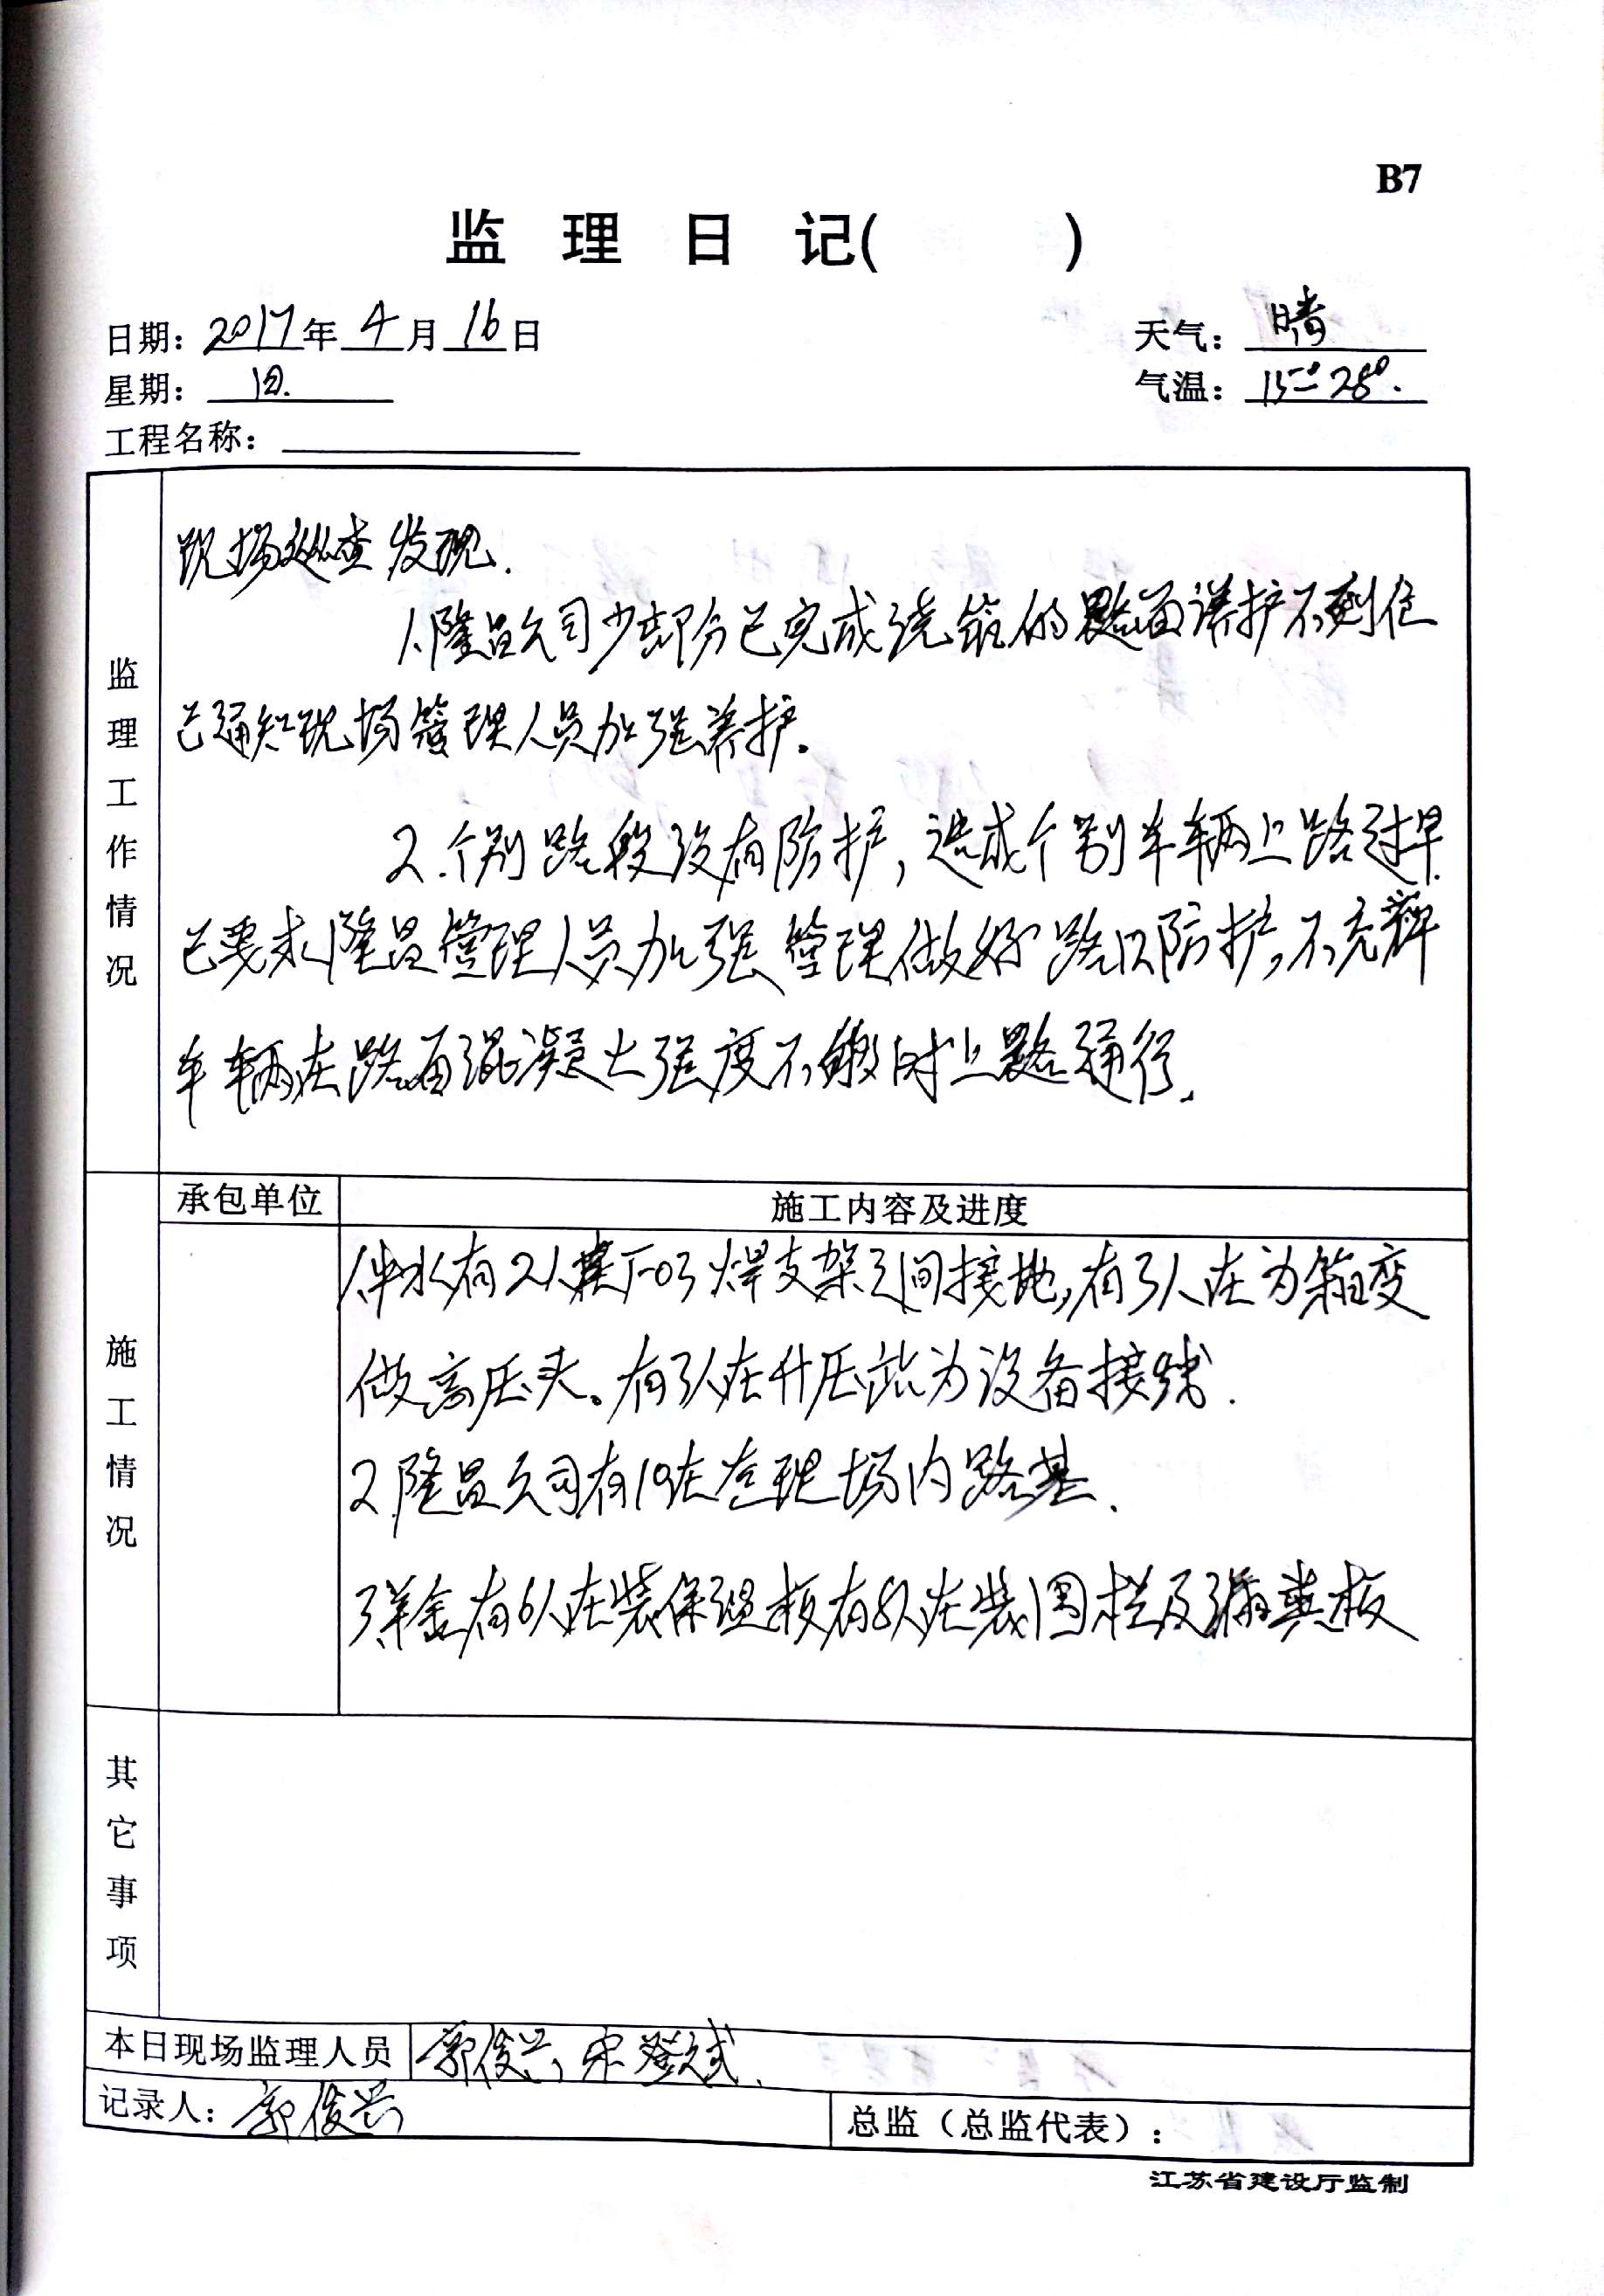 B7
监 理 日 记(    )
日期: 2017年 4月 16日
天气: 晴
星期: 日.
气温: 15°-28°.
工程名称:
监理工作情况
现场巡查发现.
1.隆昌公司少部分已完成浇筑的路面养护不到位
已通知现场管理人员加强养护。
2.个别路段没有防护,造成个别车辆上路过早.
已要求隆昌管理人员加强管理做好路口防护,不允许
车辆在路面混凝土强度不够时上路通行.
施工情况
承包单位
施工内容及进度
有2人 焊支架之间接地,有3人在为箱变
做高压头。有3人在升压站为设备接线.
2.隆昌公司有 现场内路基.
有6人在装保温板有8人在装围栏及
其它事项
本日现场监理人员
郭俊兴, 宋
记录人: 郭俊兴
总监(总监代表):
江苏省建设厅监制